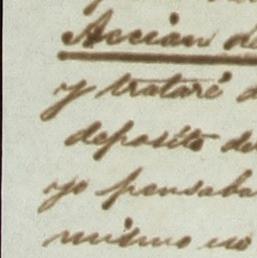 Accian de
y trataré d
deposito de
yo pensaba
mismo no